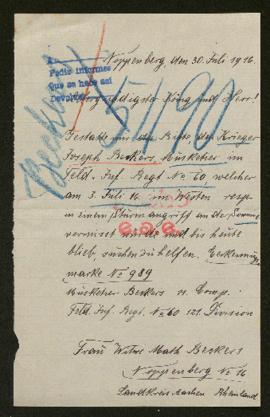 Noppenberg, den 30. Juli 1916.
Pedir informes
que se hace asi
Allergnädigster König und Herr!
51190
Gestatte mir die Bitte, den Krieger
Joseph Beckers, Musketier im
Feld. Inf. Regt No 60, welcher
am 3. Juli 16 im Westen
in einem Sturmangriff an der Somme
vermisst wurde und bis heute
blieb, suchen zu helfen. Erkennungs
marke No 989
Musketier Beckers Comp.
Feld. Inf. Regt No 60 121 Division
Frau Witwe Math Beckers
Noppenberg No 16
Landkreis Aachen Rheinland